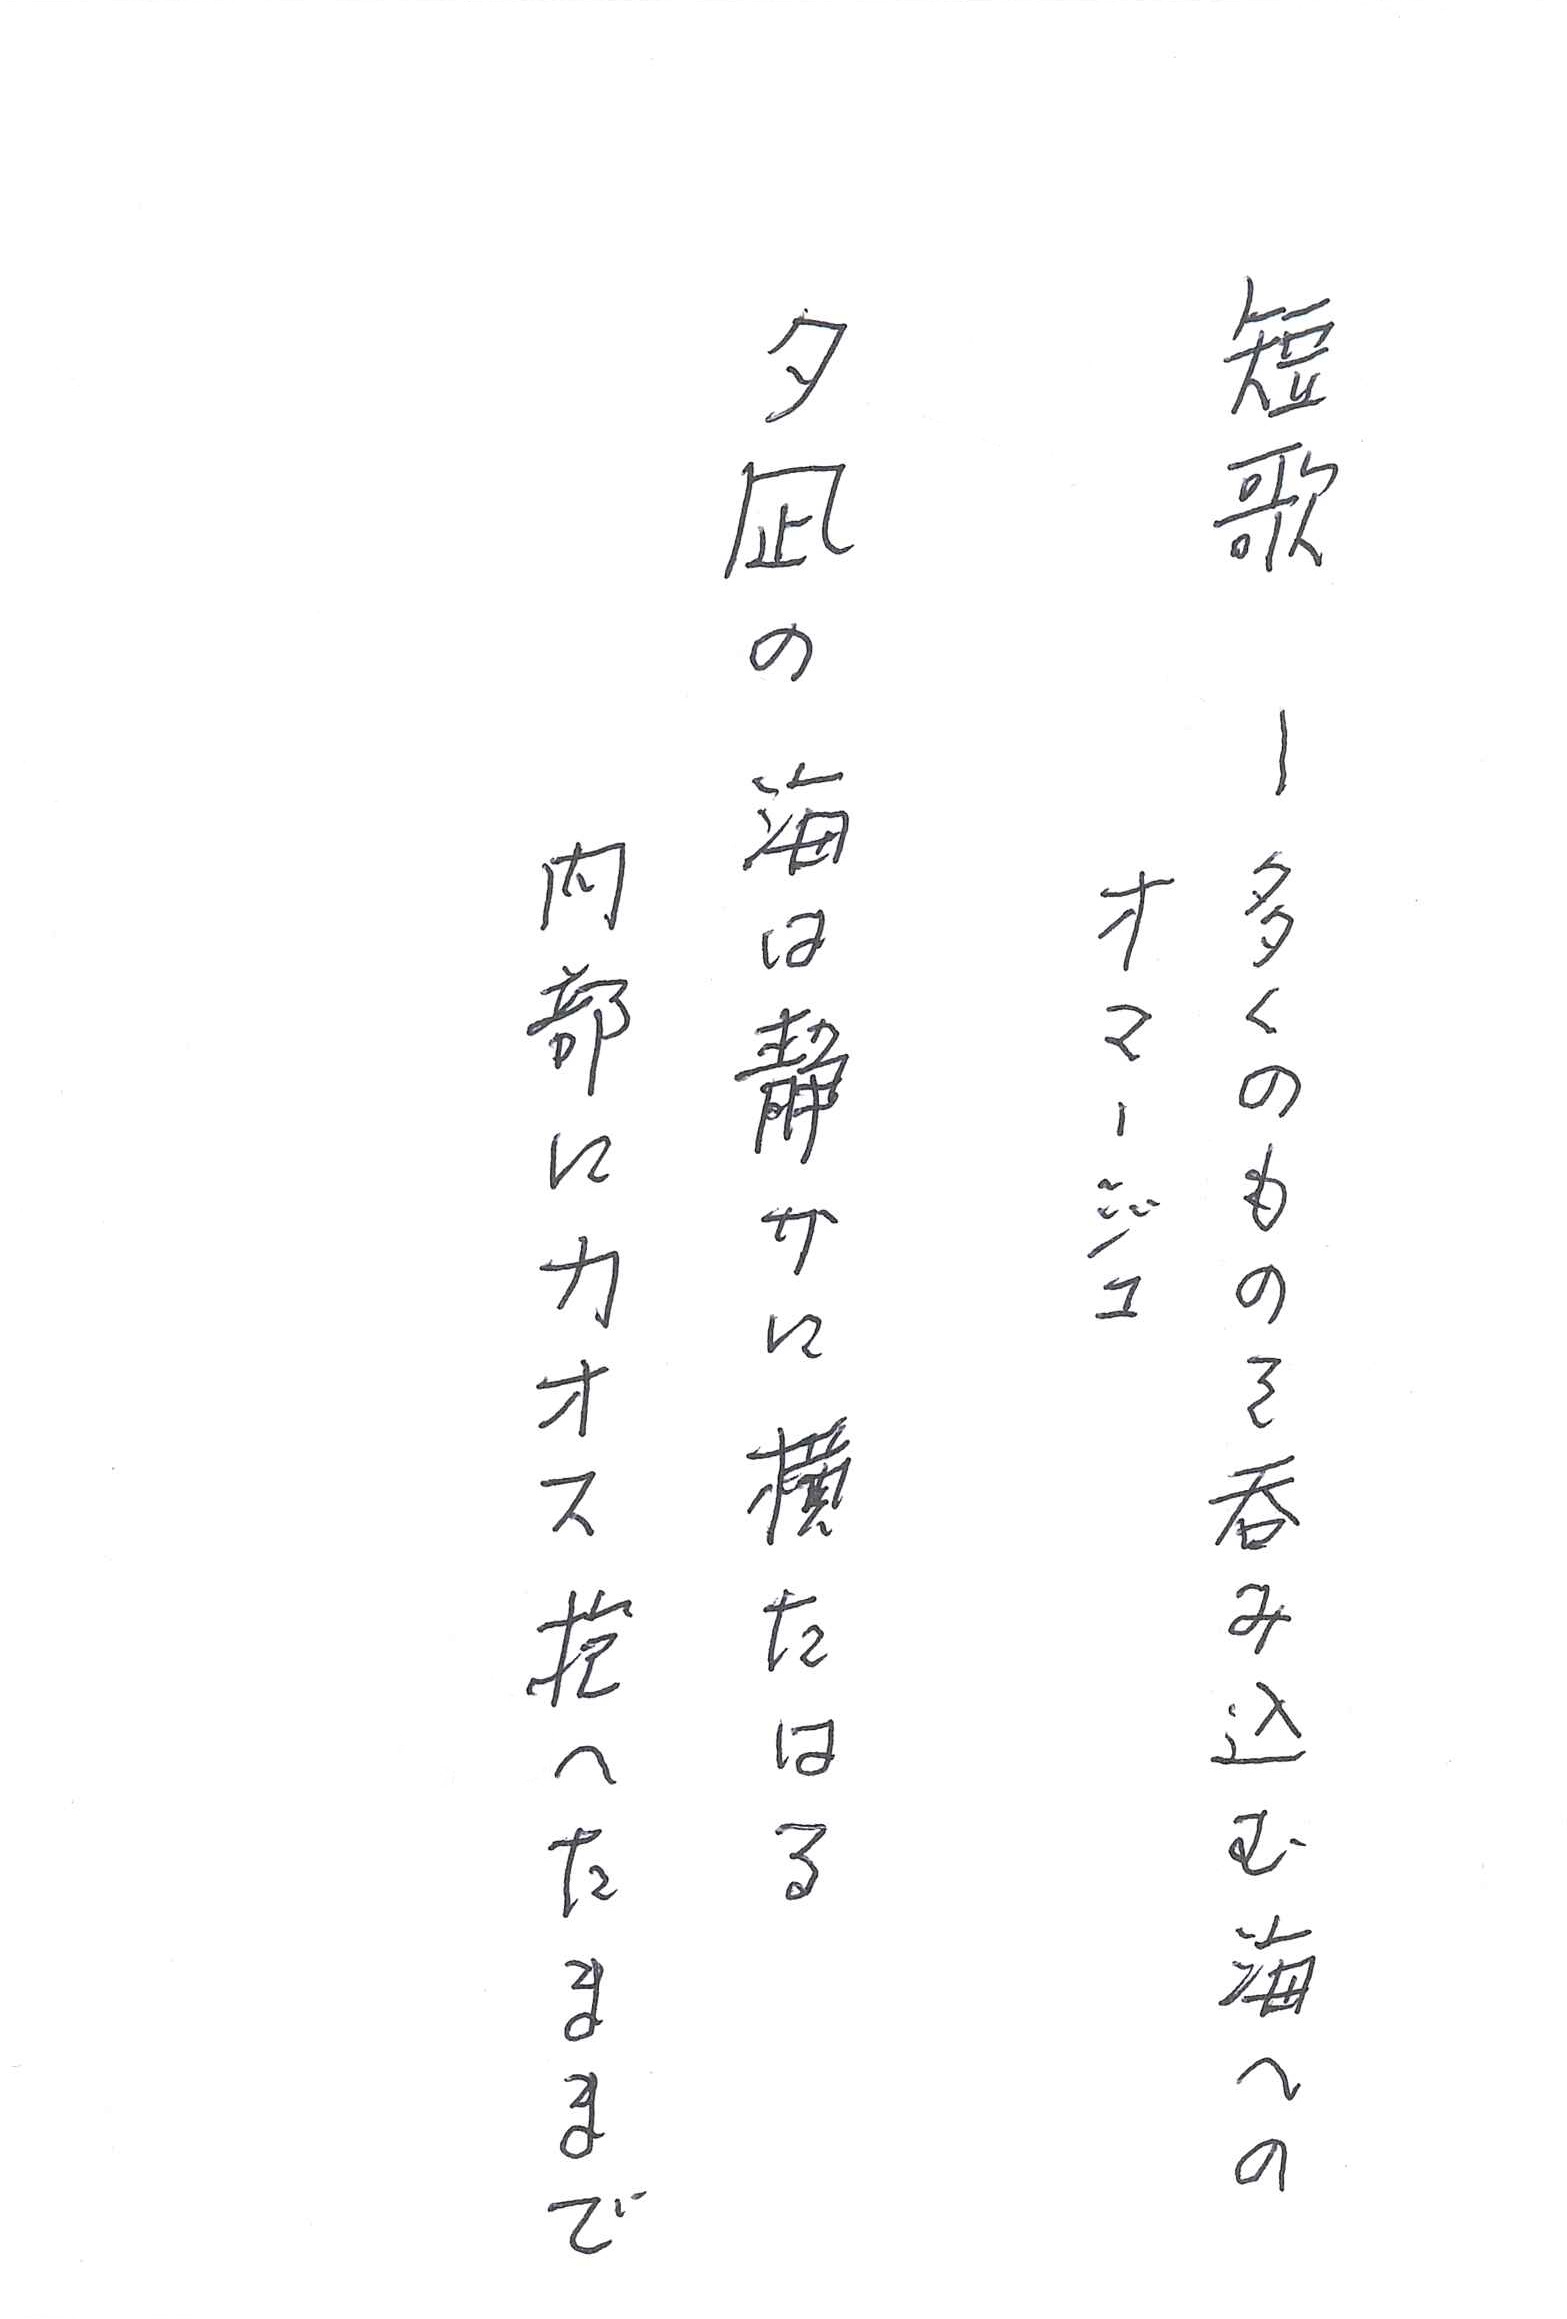 短歌 ー多くのものを呑み込む海への
オマージュ
夕凪の海は静かに横たはる
内部にカオス抱へたままで